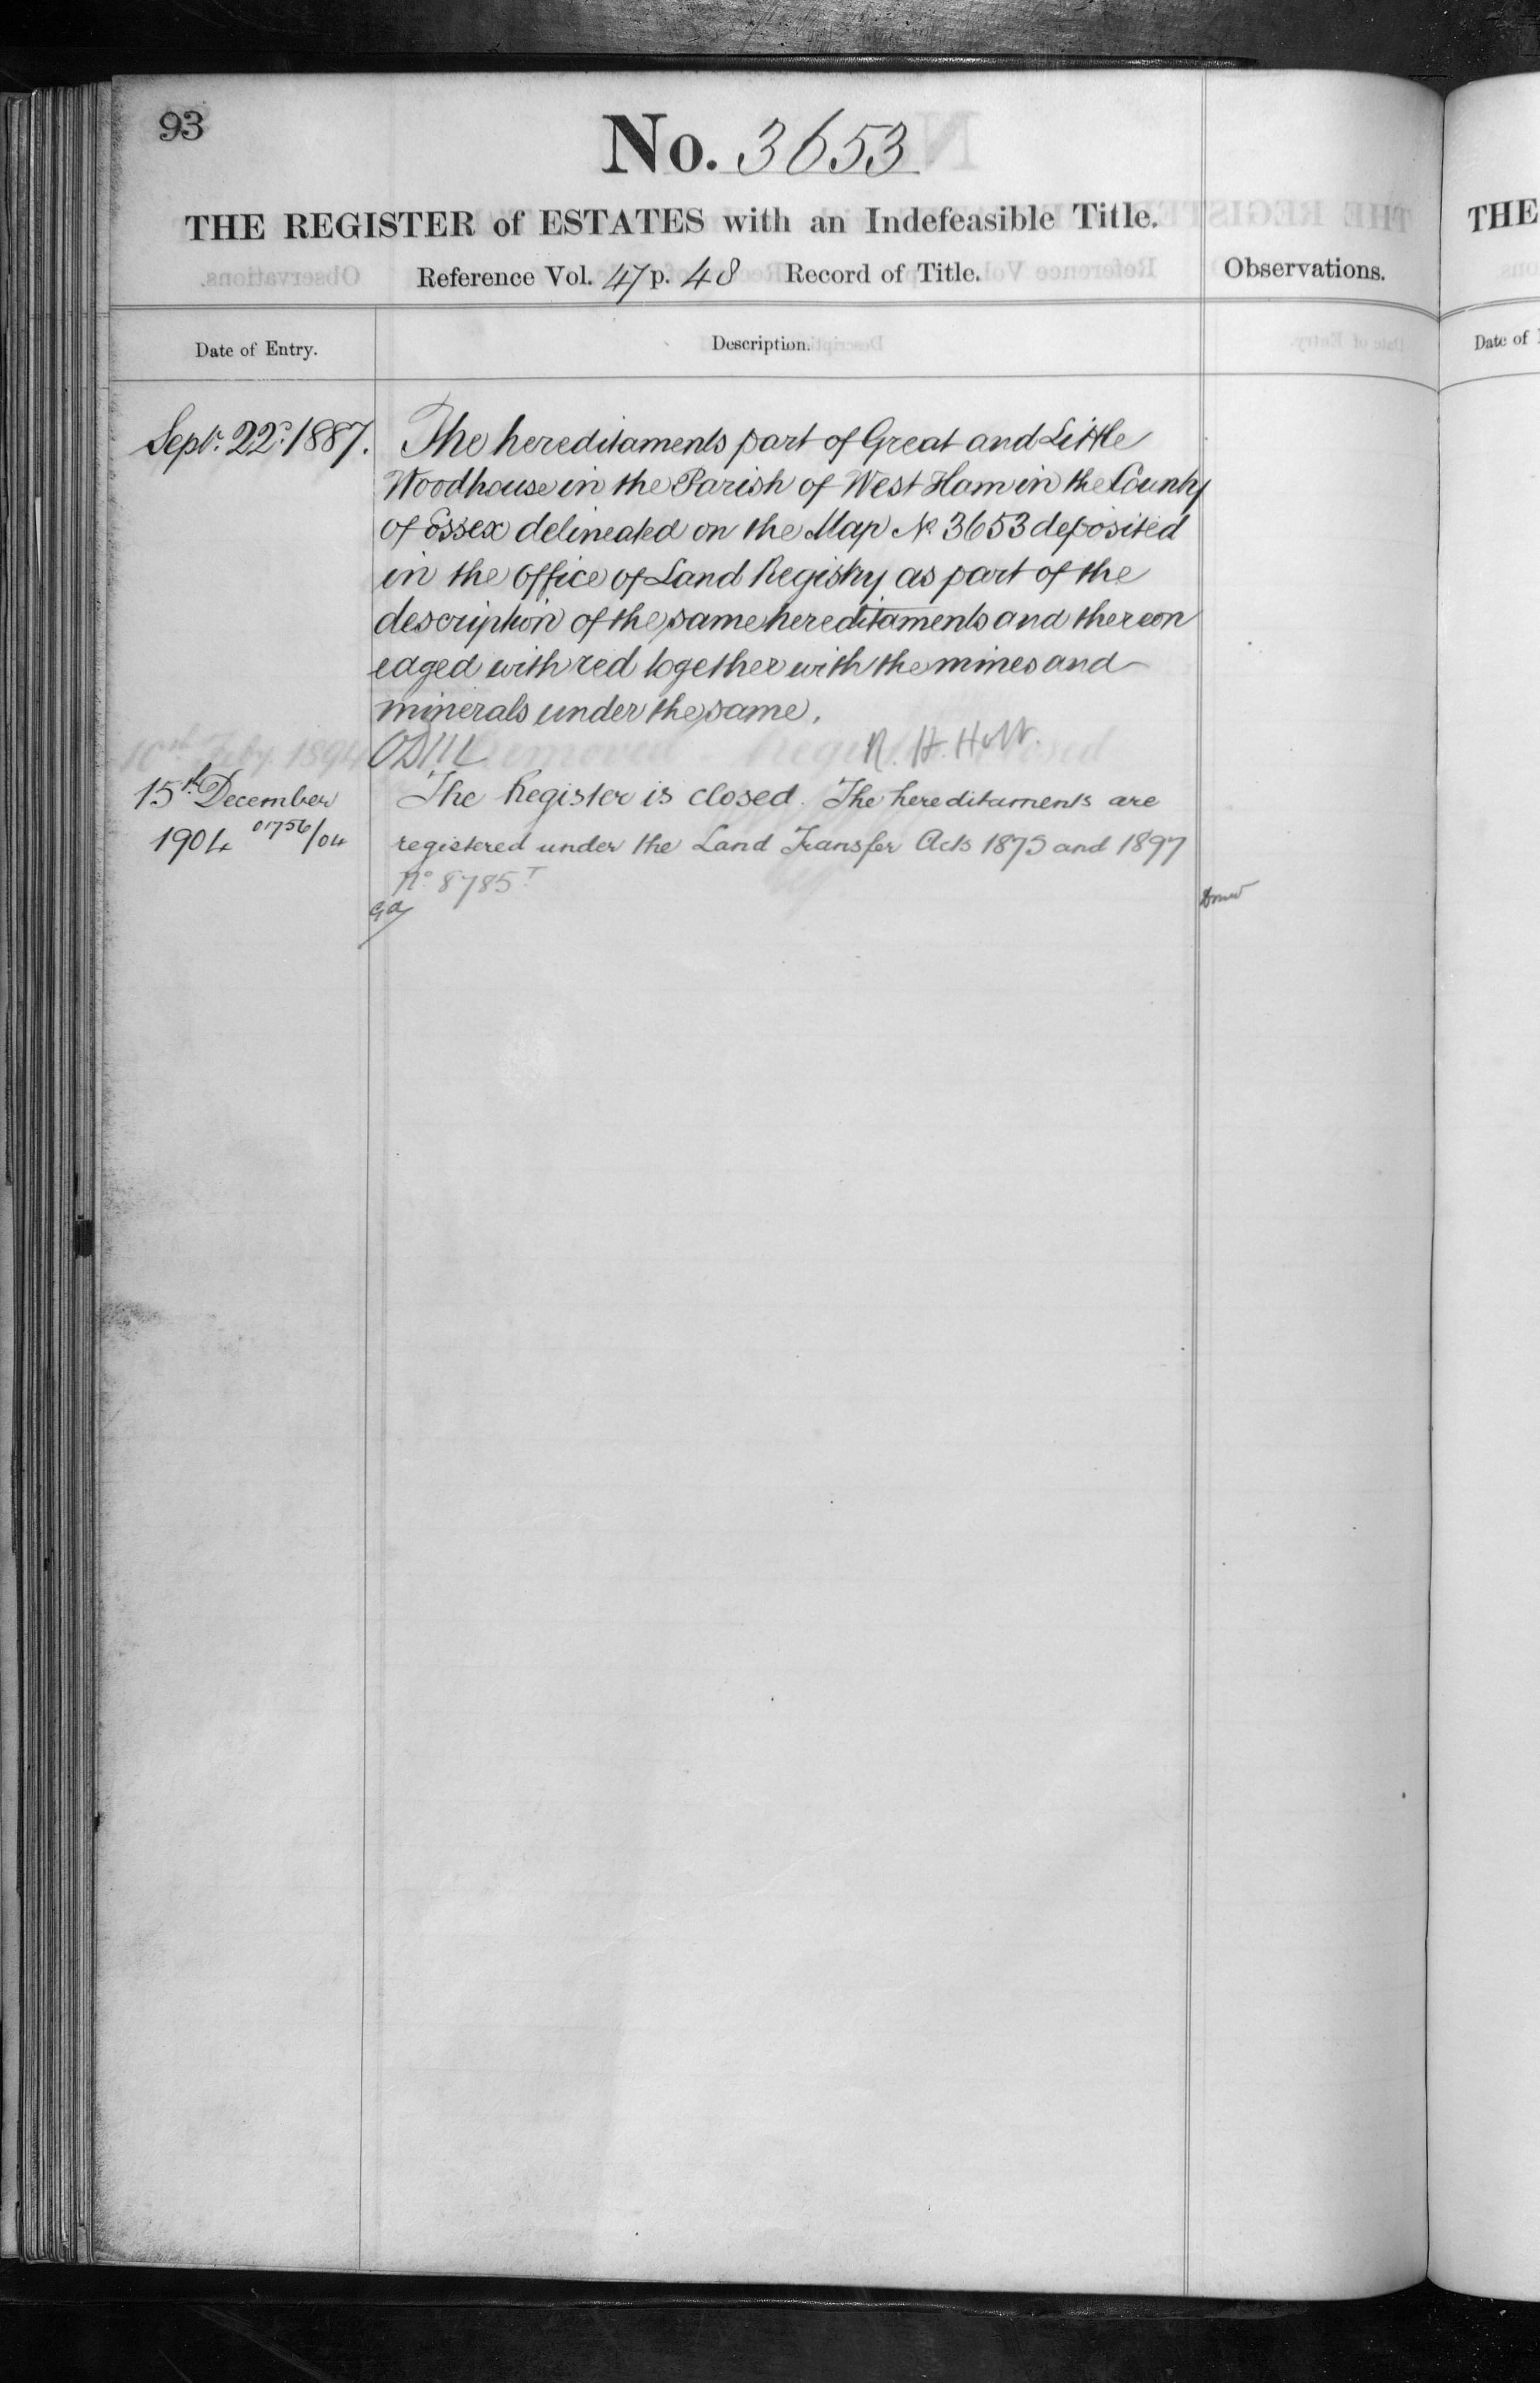 93
No. 3653
THE REGISTER of ESTATES with an Indefeasible Title.
Reference Vol. 47 p. 48 Record of Title.
Observations.
Date of Entry.
Description.
Sept. 22d. 1887.
The hereditaments part of Great and Little
Woodhouse in the Parish of West Ham in the County
of Essex delineated on the Map No. 3653 deposited
in the Office of Land Registry as part of the
description of the same hereditaments and thereon
edged with red together with the mines and
minerals under the same.
R. H. Holt.
15th December
1904 01756/04
The Register is closed. The hereditaments are
registered under the Land Transfer Acts 1875 and 1897
No 8785T
THE
Date of